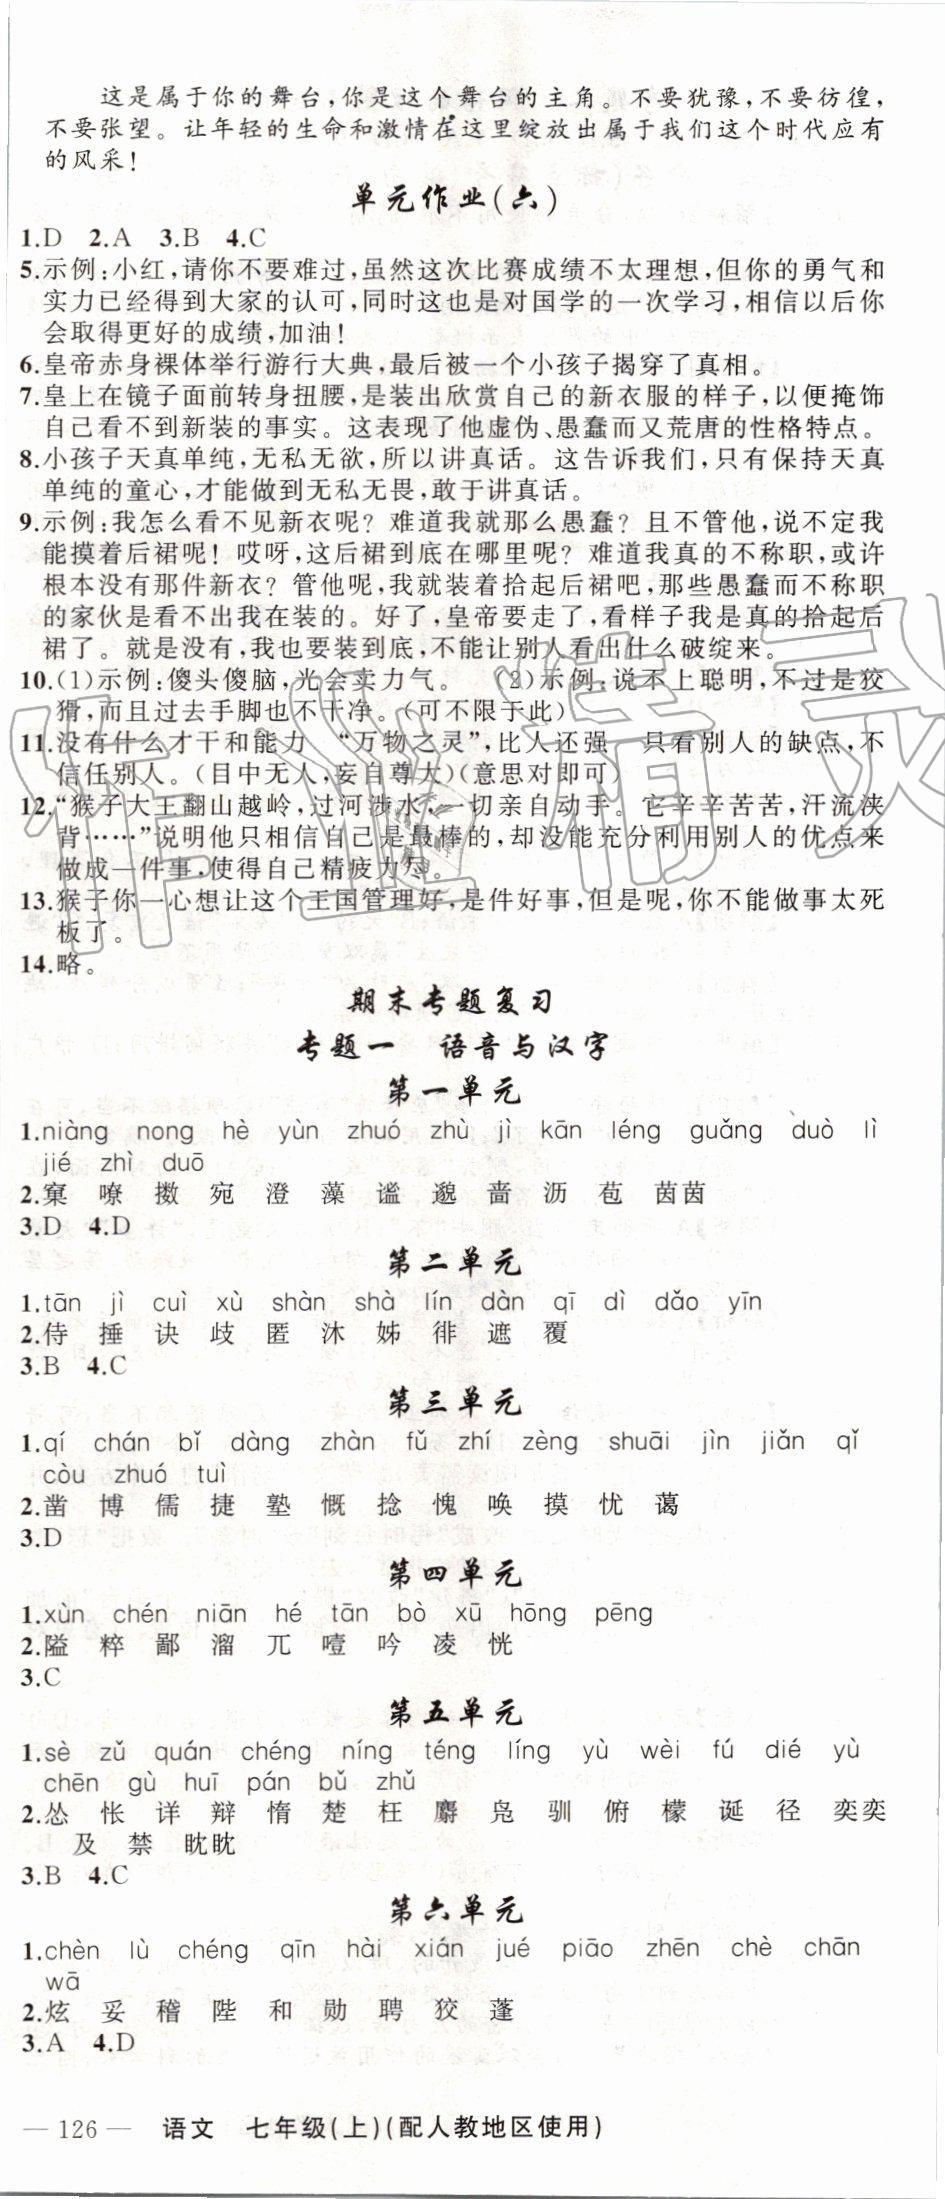 这是属于你的舞台,你是这个舞台的主角。不要犹豫,不要彷徨,
不要张望。让年轻的生命和激情在这里绽放出属于我们这个时代应有
的风采!
单元作业(六)
1.D 2.A 3.B 4.C
5.示例:小红,请你不要难过,虽然这次比赛成绩不太理想,但你的勇气和
实力已经得到大家的认可,同时这也是对国学的一次学习,相信以后你
会取得更好的成绩,加油!
6.皇帝赤身裸体举行游行大典,最后被一个小孩子揭穿了真相。
7.皇上在镜子面前转身扭腰,是装出欣赏自己的新衣服的样子,以便掩饰
自己看不到新装的事实。这表现了他虚伪、愚蠢而又荒唐的性格特点。
8.小孩子天真单纯,无私无欲,所以讲真话。这告诉我们,只有保持天真
单纯的童心,才能做到无私无畏,敢于讲真话。
9.示例:我怎么看不见新衣呢?难道我就那么愚蠢?且不管他,说不定我
能摸着后裙呢!哎呀,这后裙到底在哪里呢?难道我真的不称职,或许
根本没有那件新衣?管他呢,我就装着拾起后裙吧,那些愚蠢而不称职
的家伙是看不出我在装的。好了,皇帝要走了,看样子我是真的拾起后
裙了。就是没有,我也要装到底,不能让别人看出什么破绽来。
10.(1)示例:傻头傻脑,光会卖力气。 (2)示例:说不上聪明,不过是狡
猾,而且过去手脚也不干净。(可不限于此)
11.没有什么才干和能力 “万物之灵”,比人还强 只看别人的缺点,不
信任别人。(目中无人,妄自尊大)(意思对即可)
12.“猴子大王翻山越岭,过河涉水,一切亲自动手。它辛辛苦苦,汗流浃
背……”说明他只相信自己是最棒的,却没能充分利用别人的优点来
做成一件事,使得自己精疲力尽。
13.猴子你一心想让这个王国管理好,是件好事,但是呢,你不能做事太死
板了。
14.略。
期末专题复习
专题一 语音与汉字
第一单元
1.niàng nong hè yùn zhuó zhù jì kān léng guǎng duò lì
jié zhì duō
2.窠 嘹 擞 宛 澄 藻 谧 邈 啬 沥 苞 茵茵
3.D 4.D
第二单元
1.tān jì cuì xù shàn shà lín dàn qī dì dǎo yīn
2.侍 捶 诀 歧 匿 沐 姊 徘 遮 覆
3.B 4.C
第三单元
1.qí chán bǐ dàng zhàn fǔ zhí zèng shuāi jìn jiǎn qǐ
còu zhuó tuì
2.凿 博 儒 捷 塾 慨 捻 愧 唤 摸 忧 蔼
3.D
第四单元
1.xùn chén niān hé tān bò xū hōng pēng
2.隘 粹 鄙 溜 兀 噎 吟 凌 恍
3.C
第五单元
1.sè zǔ quán chéng níng téng líng yù wèi fú dié yù
chēn gù huī pán bǔ zhǔ
2.怂 怅 详 辩 惰 楚 枉 麝 凫 驯 俯 檬 诞 径 奕奕
及 禁 眈眈
3.B 4.C
第六单元
1.chèn lù chéng qīn hài xián jué piāo zhēn chè chān
wā
2.炫 妥 稽 陛 和 勋 聘 狡 蓬
3.A 4.D
— 126 — 语文 七年级(上)(配人教地区使用)
作业精灵